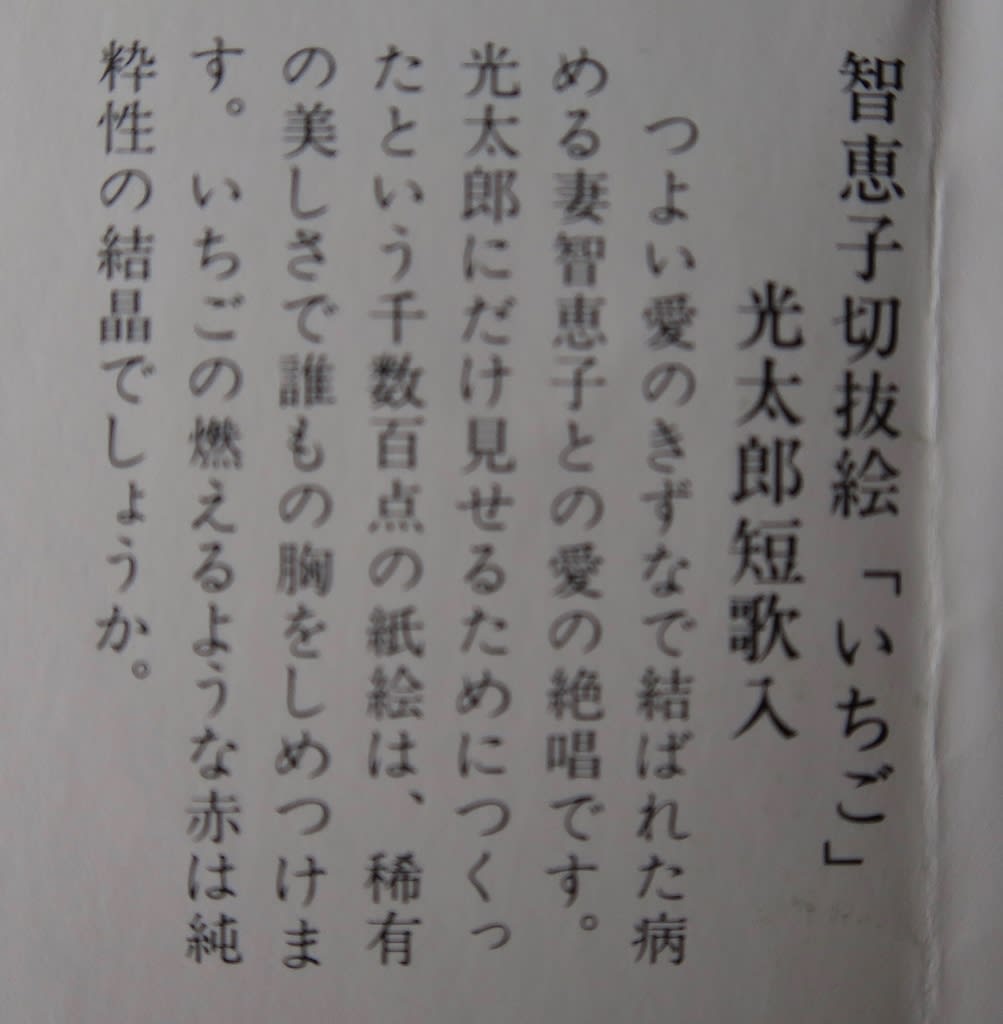 智恵子切抜絵「いちご」
光太郎短歌入
つよい愛のきずなで結ばれた病
める妻智恵子との愛の絶唱です。
光太郎にだけ見せるためにつくっ
たという千数百点の紙絵は、稀有
の美しさで誰もの胸をしめつけま
す。いちごの燃えるような赤は純
粋性の結晶でしょうか。